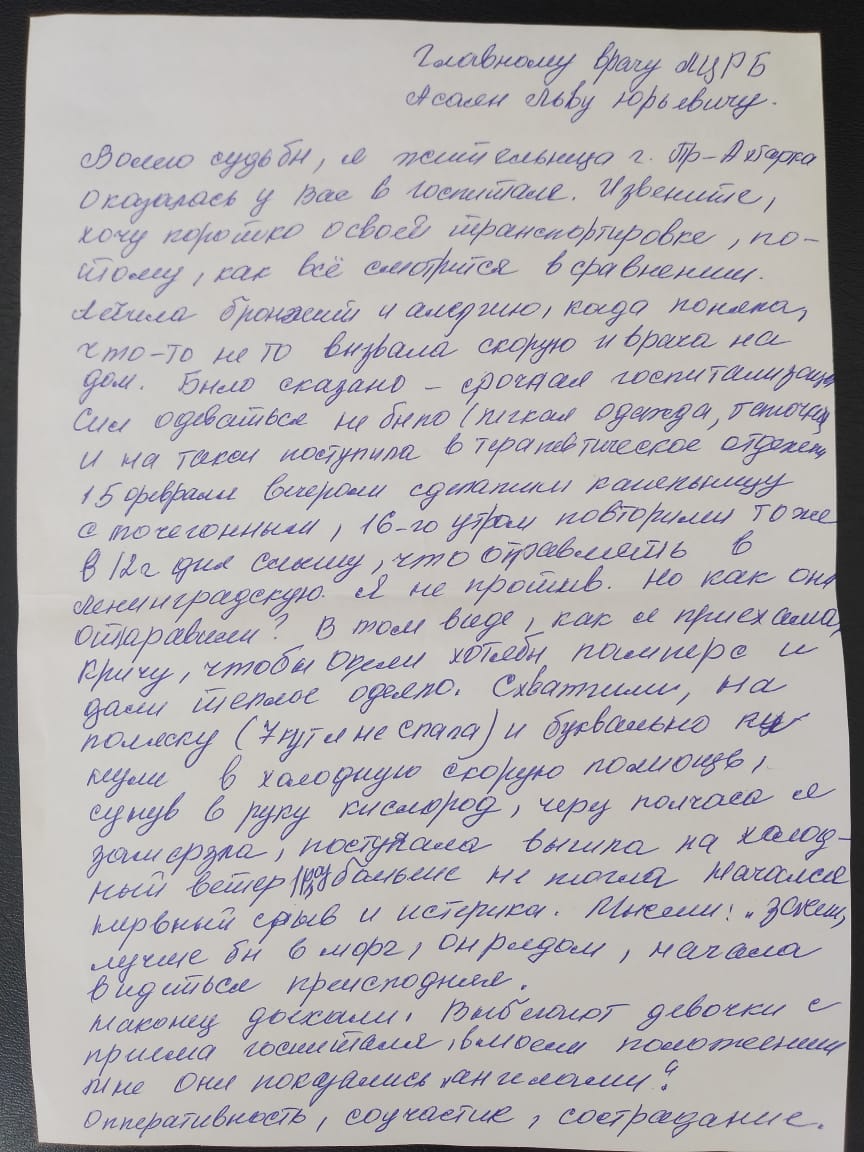 Главному врачу ЛЦРБ
Асоян Льву Юрьевичу.
Волею судьбы, я жительница г. Пр-Ахтарка
оказалась у Вас в госпитале. Извените,
хочу коротко о своей транспортировке, по-
тому, как всё смотрится в сравнении.
Лечила бронхит и алергию, кода поняла,
что-то не то вызвала скорую и врача на
дом. Было сказано – срочная госпитализация
Сил одеваться не было (легкая одежда, тапочки
и на такси поступила в терапевтическое отделени
15 февраля вечером сделали капельницу
с мочегонным, 16-го утром повторили тоже
в 12 ч дня слышу, что отправлять в
Ленинградскую. Я не против. Но как они
отправили? В том виде, как я приехала,
кричу, чтобы одели хотябы памперс и
дали теплое одеяло. Схватили, на
коляску (7 сут я не спала) и буквально ки
нули в холодную скорую помощь,
сунув в руку кислород, через полчаса я
замерзла, постучала вышла на холод-
ный ветер 1 раз больше не могла Начался
нервный срыв и истерика. Мысли: „Зачем,
лучше бы в морг, он рядом, начала
видеться преисподняя.
Наконец доехали. Выбегают девочки с
приема госпиталя, в моем положении
мне они показались „ангелами“.
Опперативность, соучастие, сострадание.